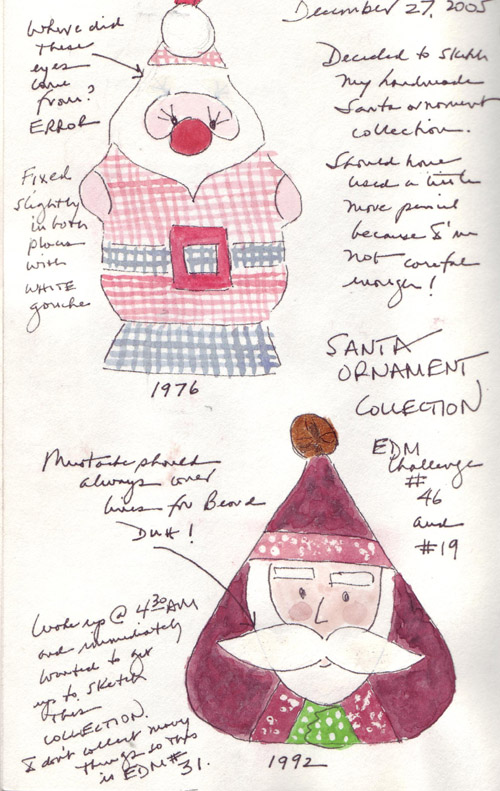 December 27, 2005
Where did
these
eyes
come
from?
ERROR
Decided to sketch
my handmade
Santa ornament
collection.
Should have
used a little
more pencil
because I'm
not careful
enough!
Fixed
slightly
in both
places
with
WHITE
gouache
1976
SANTA
ORNAMENT
COLLECTION
EDM
Challenge
#
46
and
#19
Mustache should
always cover
lines for Beard
DUH!
Woke up @ 4:30 AM
and immediately
wanted to get
up to sketch
this
COLLECTION.
I don't collect many
things so this
is EDM #
31.
1992